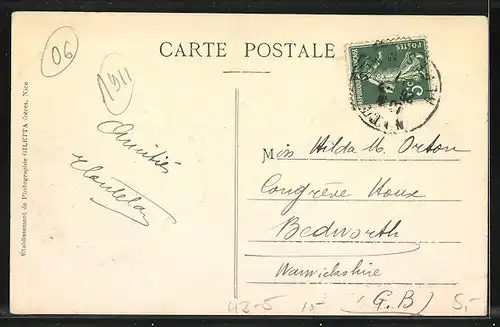 06
1911
CARTE POSTALE
POSTES
5c
Amitiés
Miss Hilda M. Orton
Congreve House
Bedworth
Warwickshire
(G.B)
Établissement de Photographie GILETTA frères, Nice
43-5 15- 5,-